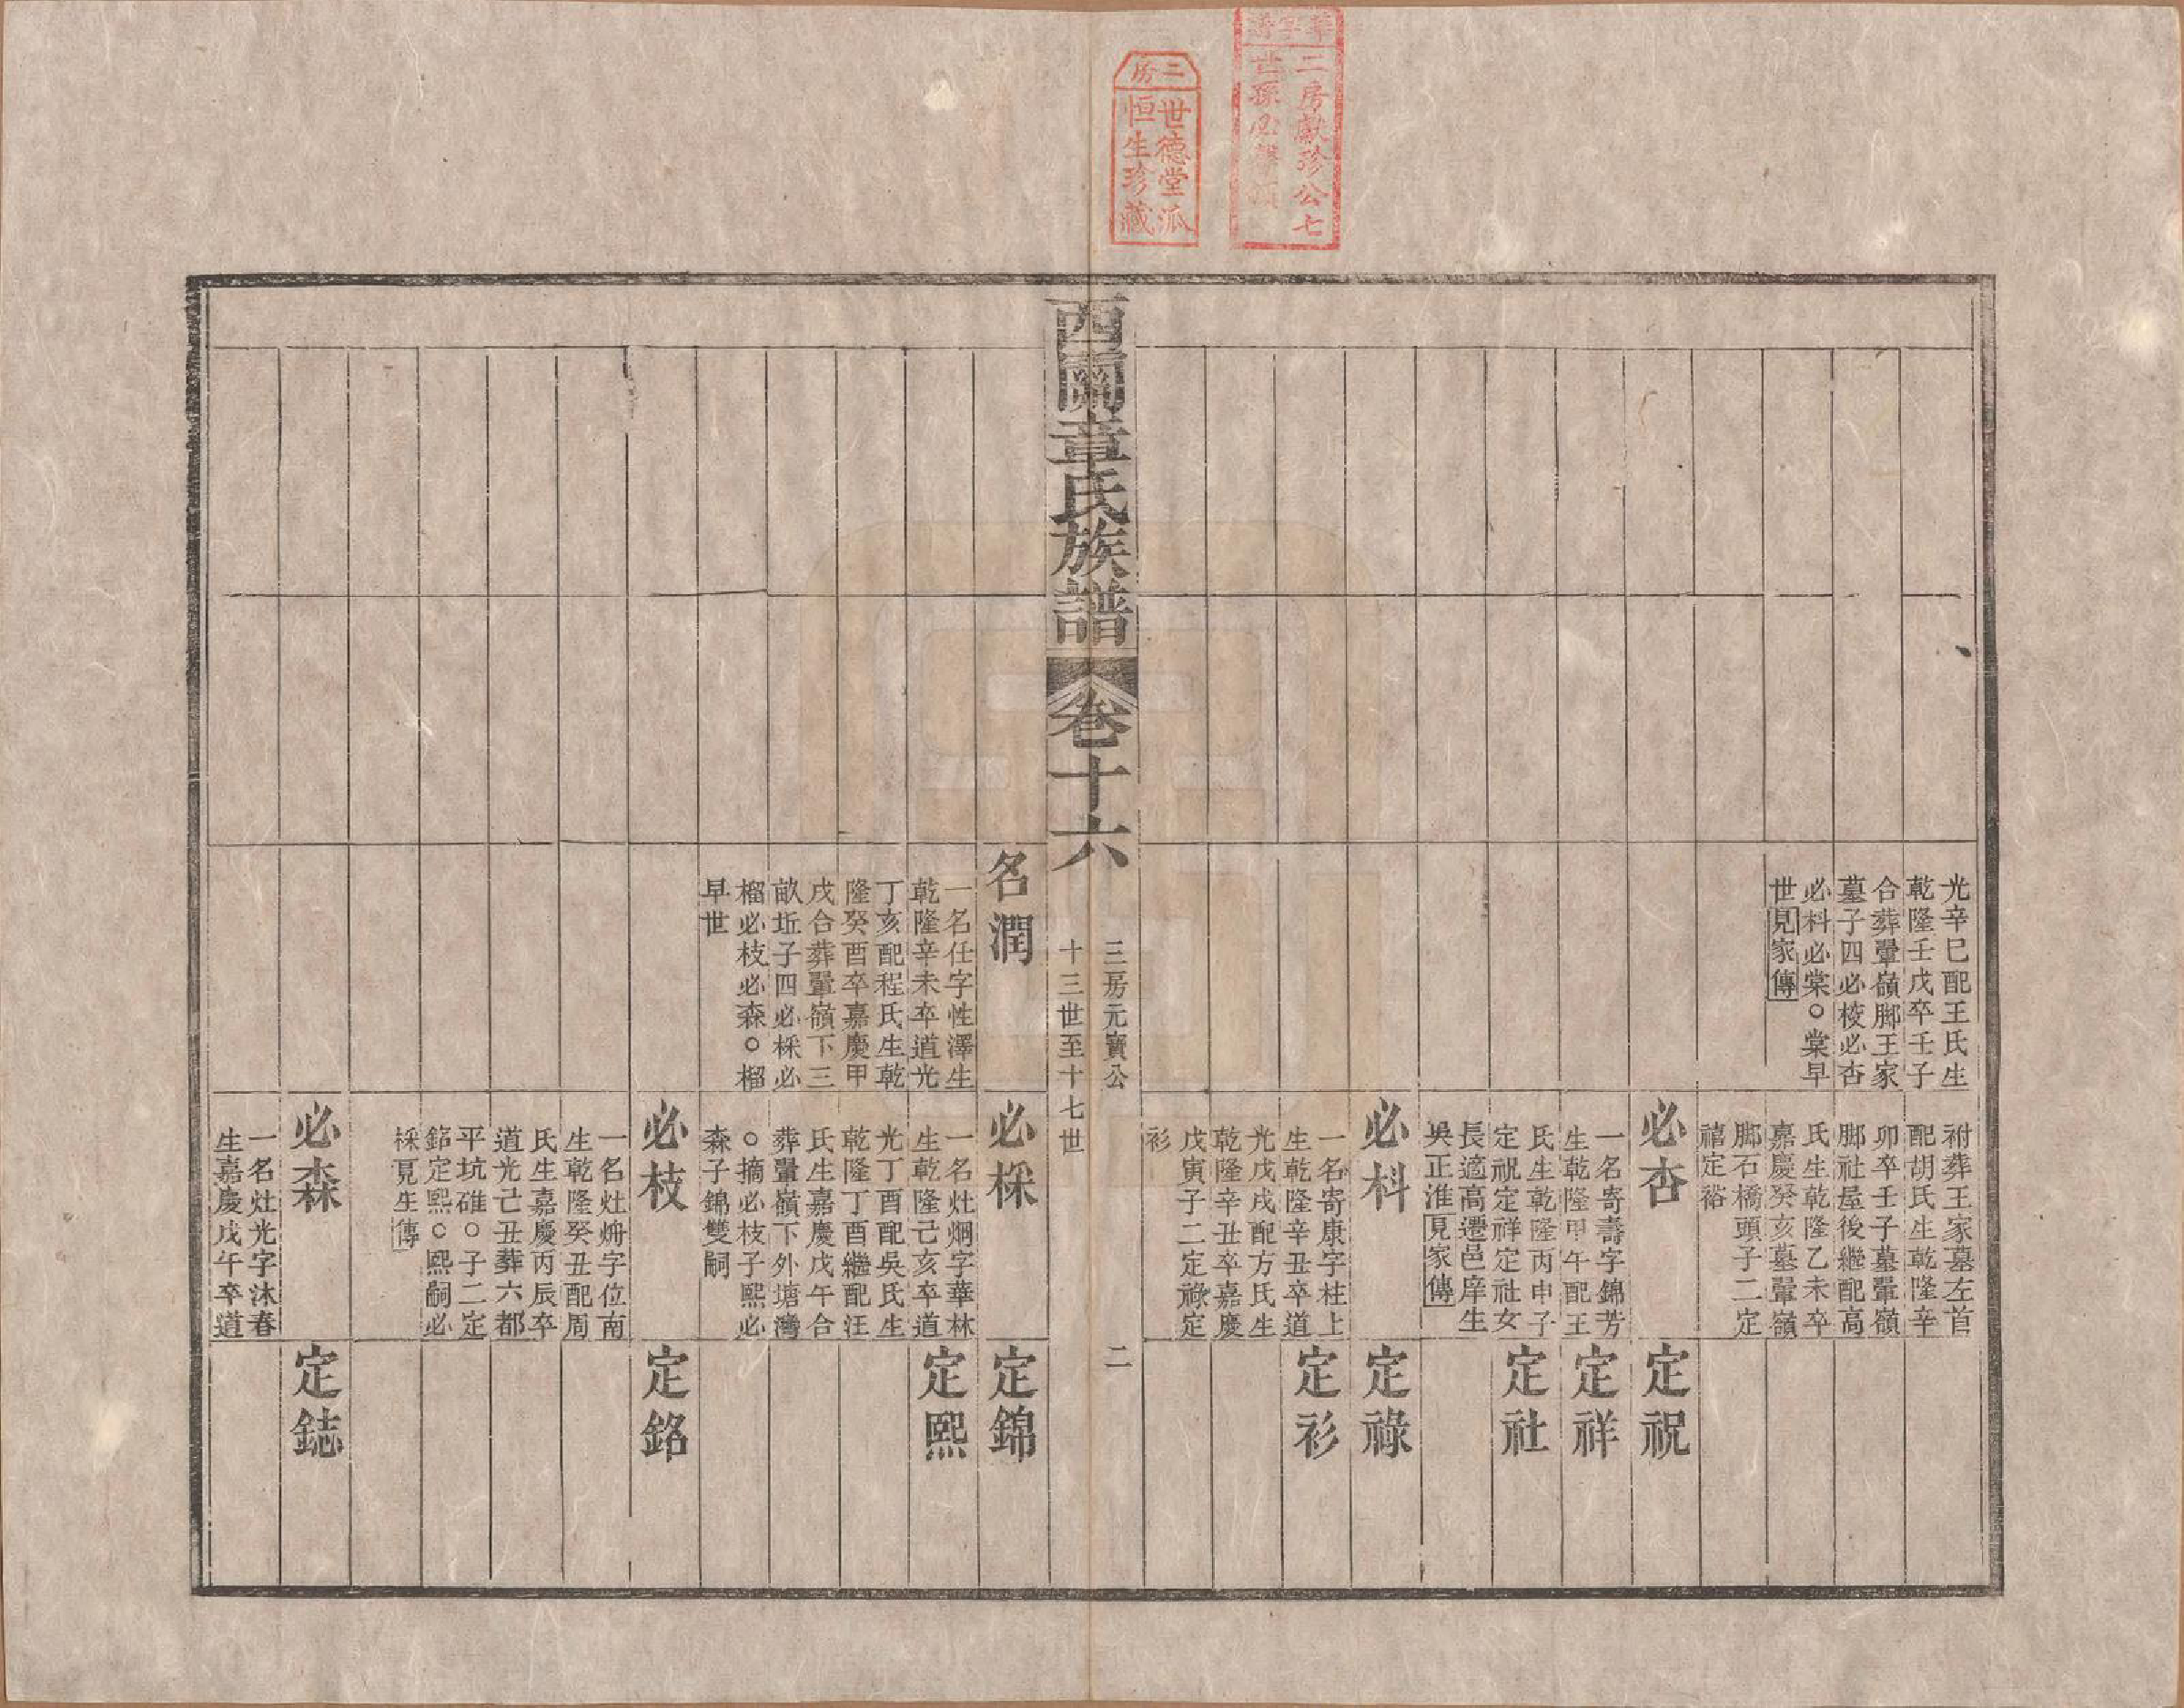 二房獻珍公七
世孫
二房
世德堂派
恒生珍藏
光辛巳配王氏生
乾隆壬戌卒壬子
合葬翬嶺脚王家
墓子四必棱必杏
必料必棠○棠早
世見家傳
祔葬王家墓左首
配胡氏生乾隆辛
卯卒壬子墓翬嶺
脚社屋後繼配高
氏生乾隆乙未卒
嘉慶癸亥墓翬嶺
脚石橋頭子二定
禧定裕
必杏
一名寄壽字錦芳
生乾隆甲午配王
氏生乾隆丙申子
定祝定祥定社女
長適高遷邑庠生
吳正淮見家傳
必料
一名寄康字柱上
生乾隆辛丑卒道
光戊戌配方氏生
乾隆辛丑卒嘉慶
戊寅子二定祿定
衫
定祝
定祥
定社
定祿
定衫
西關章氏族譜
卷十六
三房元寶公
十三世至十七世
二
名潤
一名仕字性澤生
乾隆辛未卒道光
丁亥配程氏生乾
隆癸酉卒嘉慶甲
戌合葬翬嶺下三
畝坵子四必棌必
榴必枝必森○榴
早世
必棌
一名灶炯字華林
生乾隆己亥卒道
光丁酉配吳氏生
乾隆丁酉繼配汪
氏生嘉慶戊午合
葬翬嶺下外塘灣
○摘必枝子熙必
森子錦雙嗣
必枝
一名灶炳字位南
生乾隆癸丑配周
氏生嘉慶丙辰卒
道光己丑葬六都
平坑碓○子二定
銘定熙○熙嗣必
棌見生傳
必森
一名灶光字沐春
生嘉慶戊午卒道
定錦
定熙
定銘
定鋕